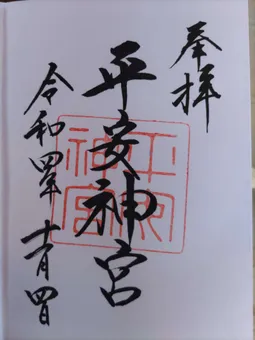 奉拝
平安神宮
平安神宮
令和四年十一月四日